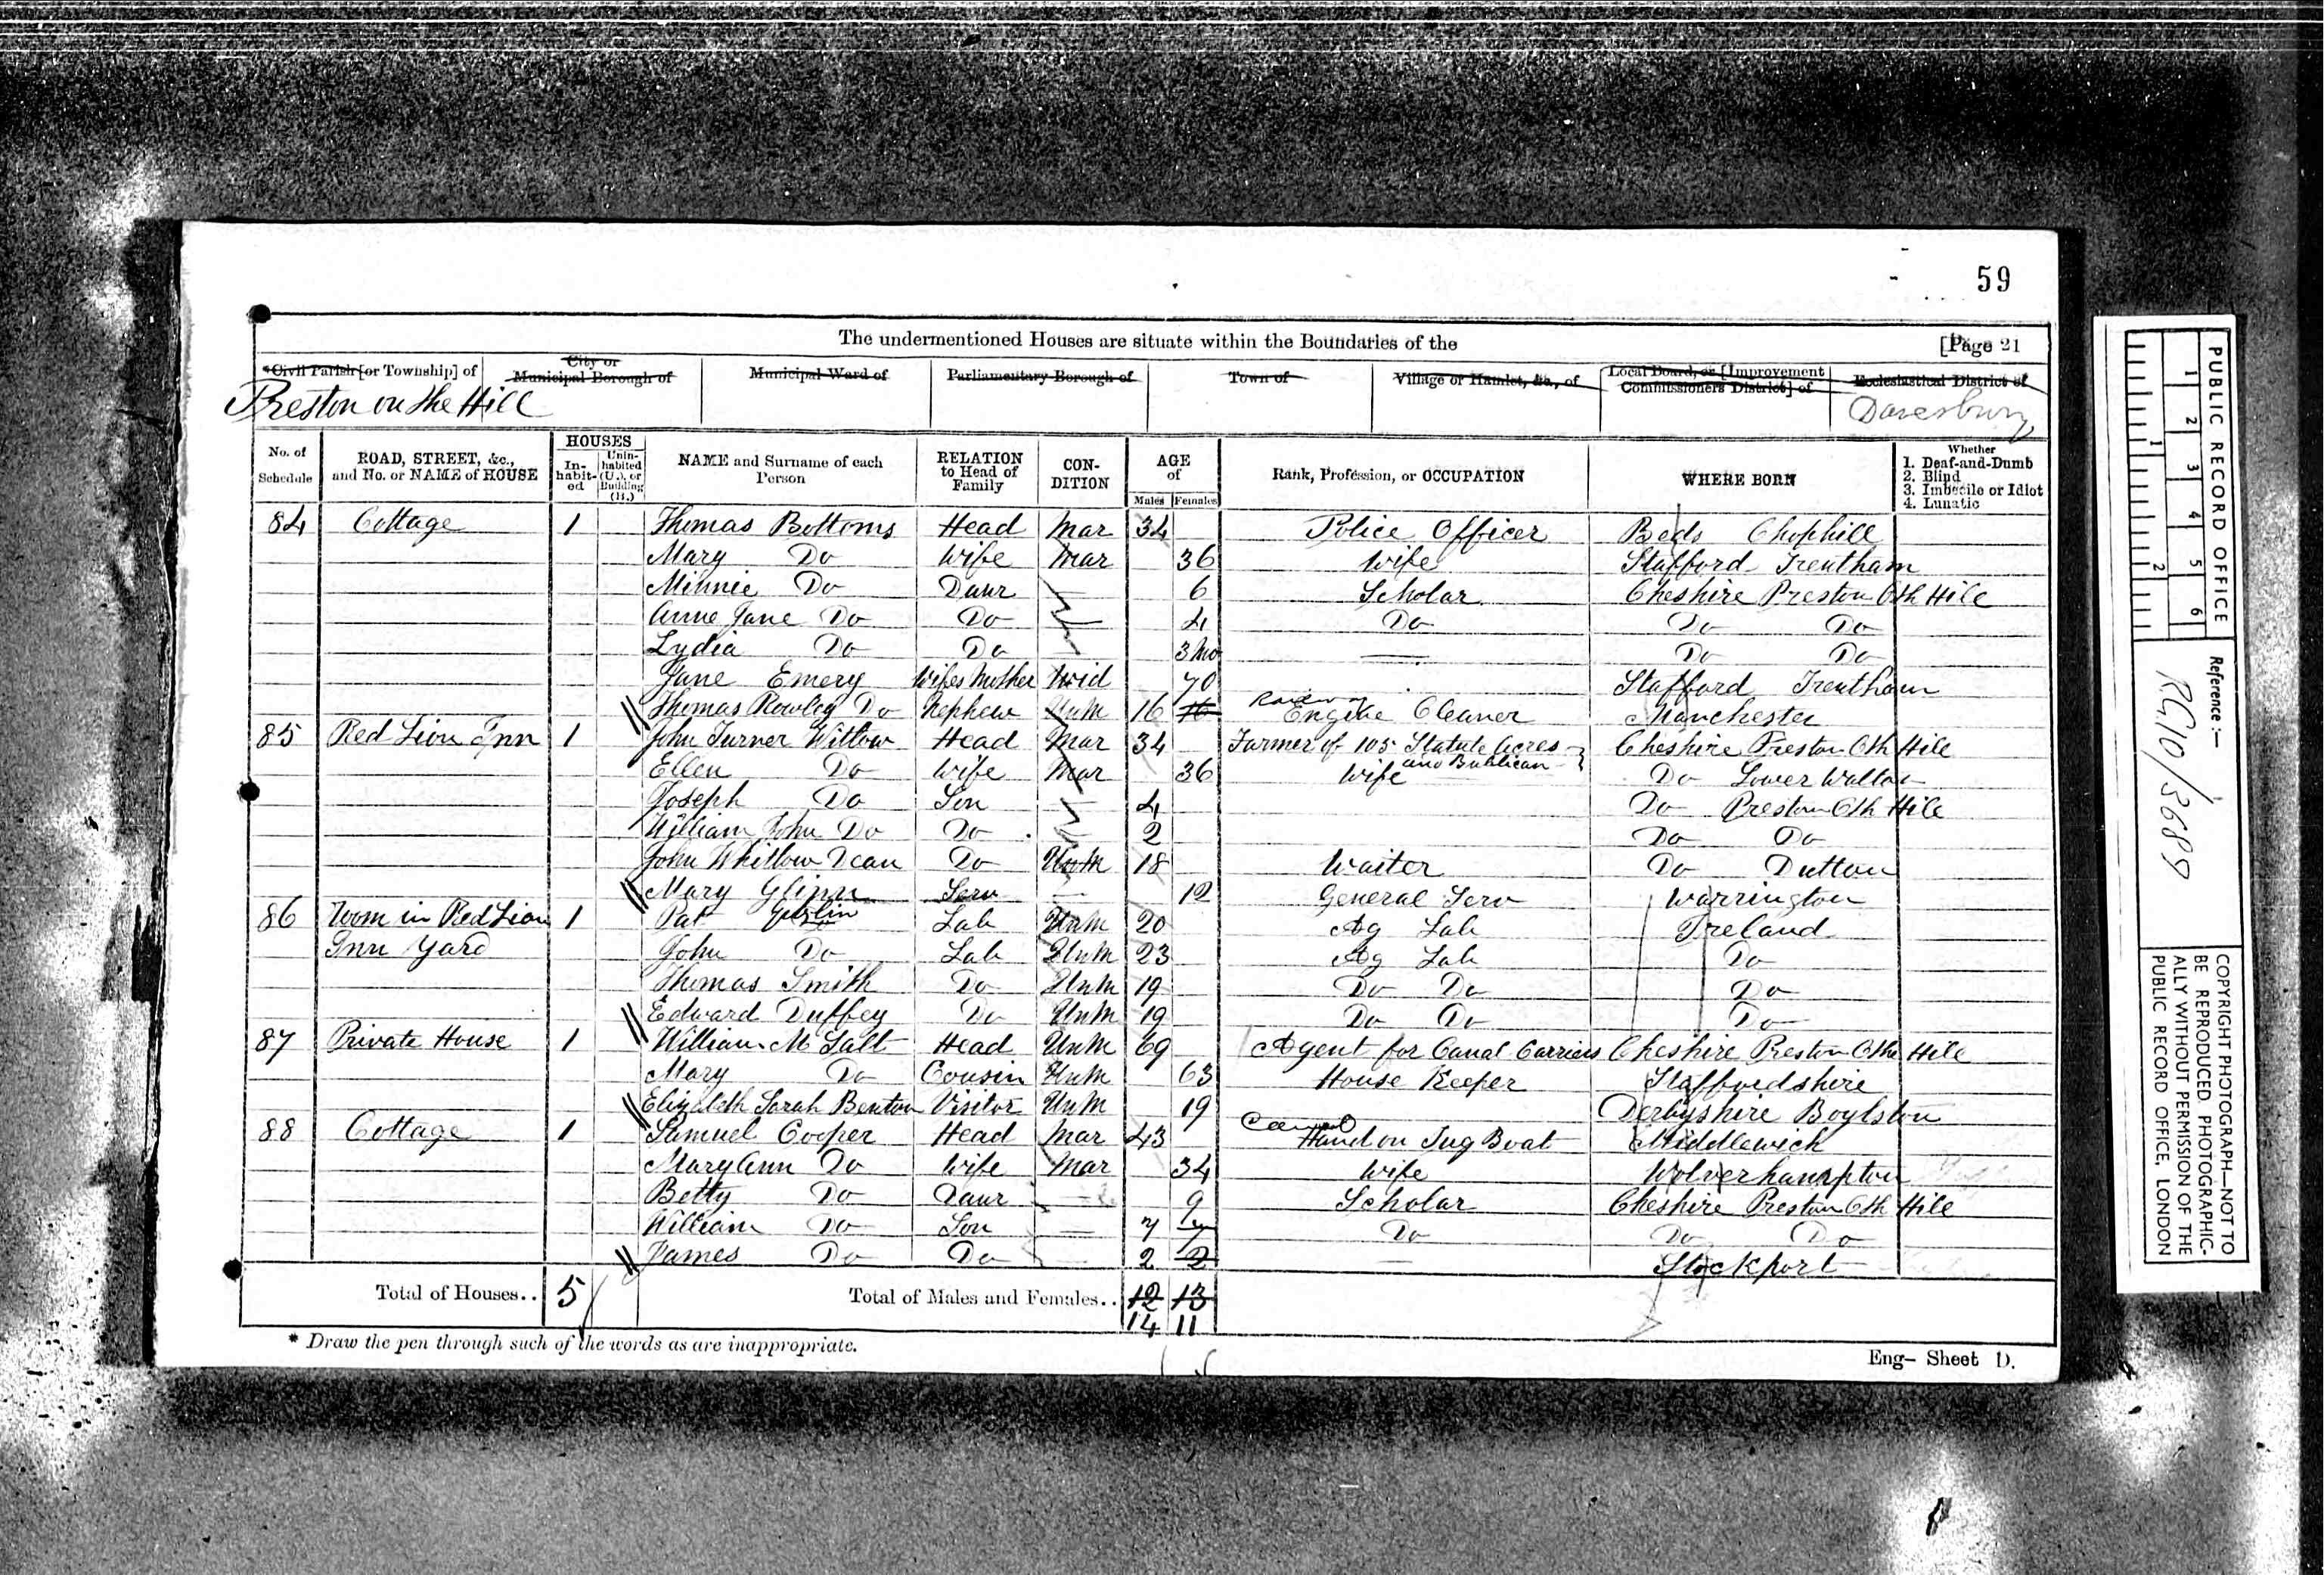 59
The undermentioned Houses are situate within the Boundaries of the
[Page 21
*Civil Parish [or Township] of
City or Municipal Borough of
Municipal Ward of
Parliamentary Borough of
Town of
Village or Hamlet, &c., of
Local Board, or [Improvement Commissioners District] of
Ecclesiastical District of
Preston on the Hill
Daresbury
No. of Schedule
ROAD, STREET, &c., and No. or NAME of HOUSE
HOUSES
In-habit-ed
Unin-habited (U.), or Building (B.)
NAME and Surname of each Person
RELATION to Head of Family
CON-DITION
AGE of
Males Females
Rank, Profession, or OCCUPATION
WHERE BORN
Whether
1. Deaf-and-Dumb
2. Blind
3. Imbecile or Idiot
4. Lunatic
84 Cottage 1 Thomas Bottoms Head Mar 34 Police Officer Beds Chophill
Mary Do Wife Mar 36 Wife Stafford Trentham
Minnie Do Daur 6 Scholar Cheshire Preston Oth Hill
Anne Jane Do Do 4 Do Do Do
Lydia Do Do 3 Mo Do Do
Jane Emery Wifes Mother Wid 70 Stafford Trentham
Thomas Rowley Do Nephew UnM 16 16 Engine Cleaner Manchester
85 Red Lion Inn 1 John Turner Witlow Head Mar 34 Farmer of 105 Statute Acres and Publican Cheshire Preston Oth Hill
Ellen Do Wife Mar 36 Wife Do Lower Walton
Joseph Do Son 4 Do Preston Oth Hill
William John Do Do 2 Do Do
John Whitlow Dean Do UnM 18 Waiter Do Dutton
Mary Glinn Serv 12 General Serv Warrington
86 Room in Red Lion 1 Pat Lab UnM 20 Ag Lab Ireland
Inn Yard John Do Lab UnM 23 Ag Lab Do
Thomas Smith Do UnM 19 Do Do Do
Edward Duffey Do UnM 19 Do Do Do
87 Private House 1 William M Salt Head UnM 69 Agent for Canal Carriers Cheshire Preston Oth Hill
Mary Do Cousin UnM 63 House Keeper Staffordshire
Elizabeth Sarah Benton Visitor UnM 19 Derbyshire Boylston
88 Cottage 1 Samuel Cooper Head Mar 43 Hand on Tug Boat Middlewich
Mary Ann Do Wife Mar 34 Wife Wolverhampton
Betty Do Daur 9 Scholar Cheshire Preston Oth Hill
William Do Son 7 7 Do Do Do
James Do Do 2 2 Stockport
Total of Houses.. 5
Total of Males and Females.. 12 13
14 11
* Draw the pen through such of the words as are inappropriate.
Eng— Sheet D.
PUBLIC RECORD OFFICE
1 2 3 4 5 6
1 2
Reference :—
RG10/3689
COPYRIGHT PHOTOGRAPH—NOT TO
BE REPRODUCED PHOTOGRAPHIC-
ALLY WITHOUT PERMISSION OF THE
PUBLIC RECORD OFFICE, LONDON